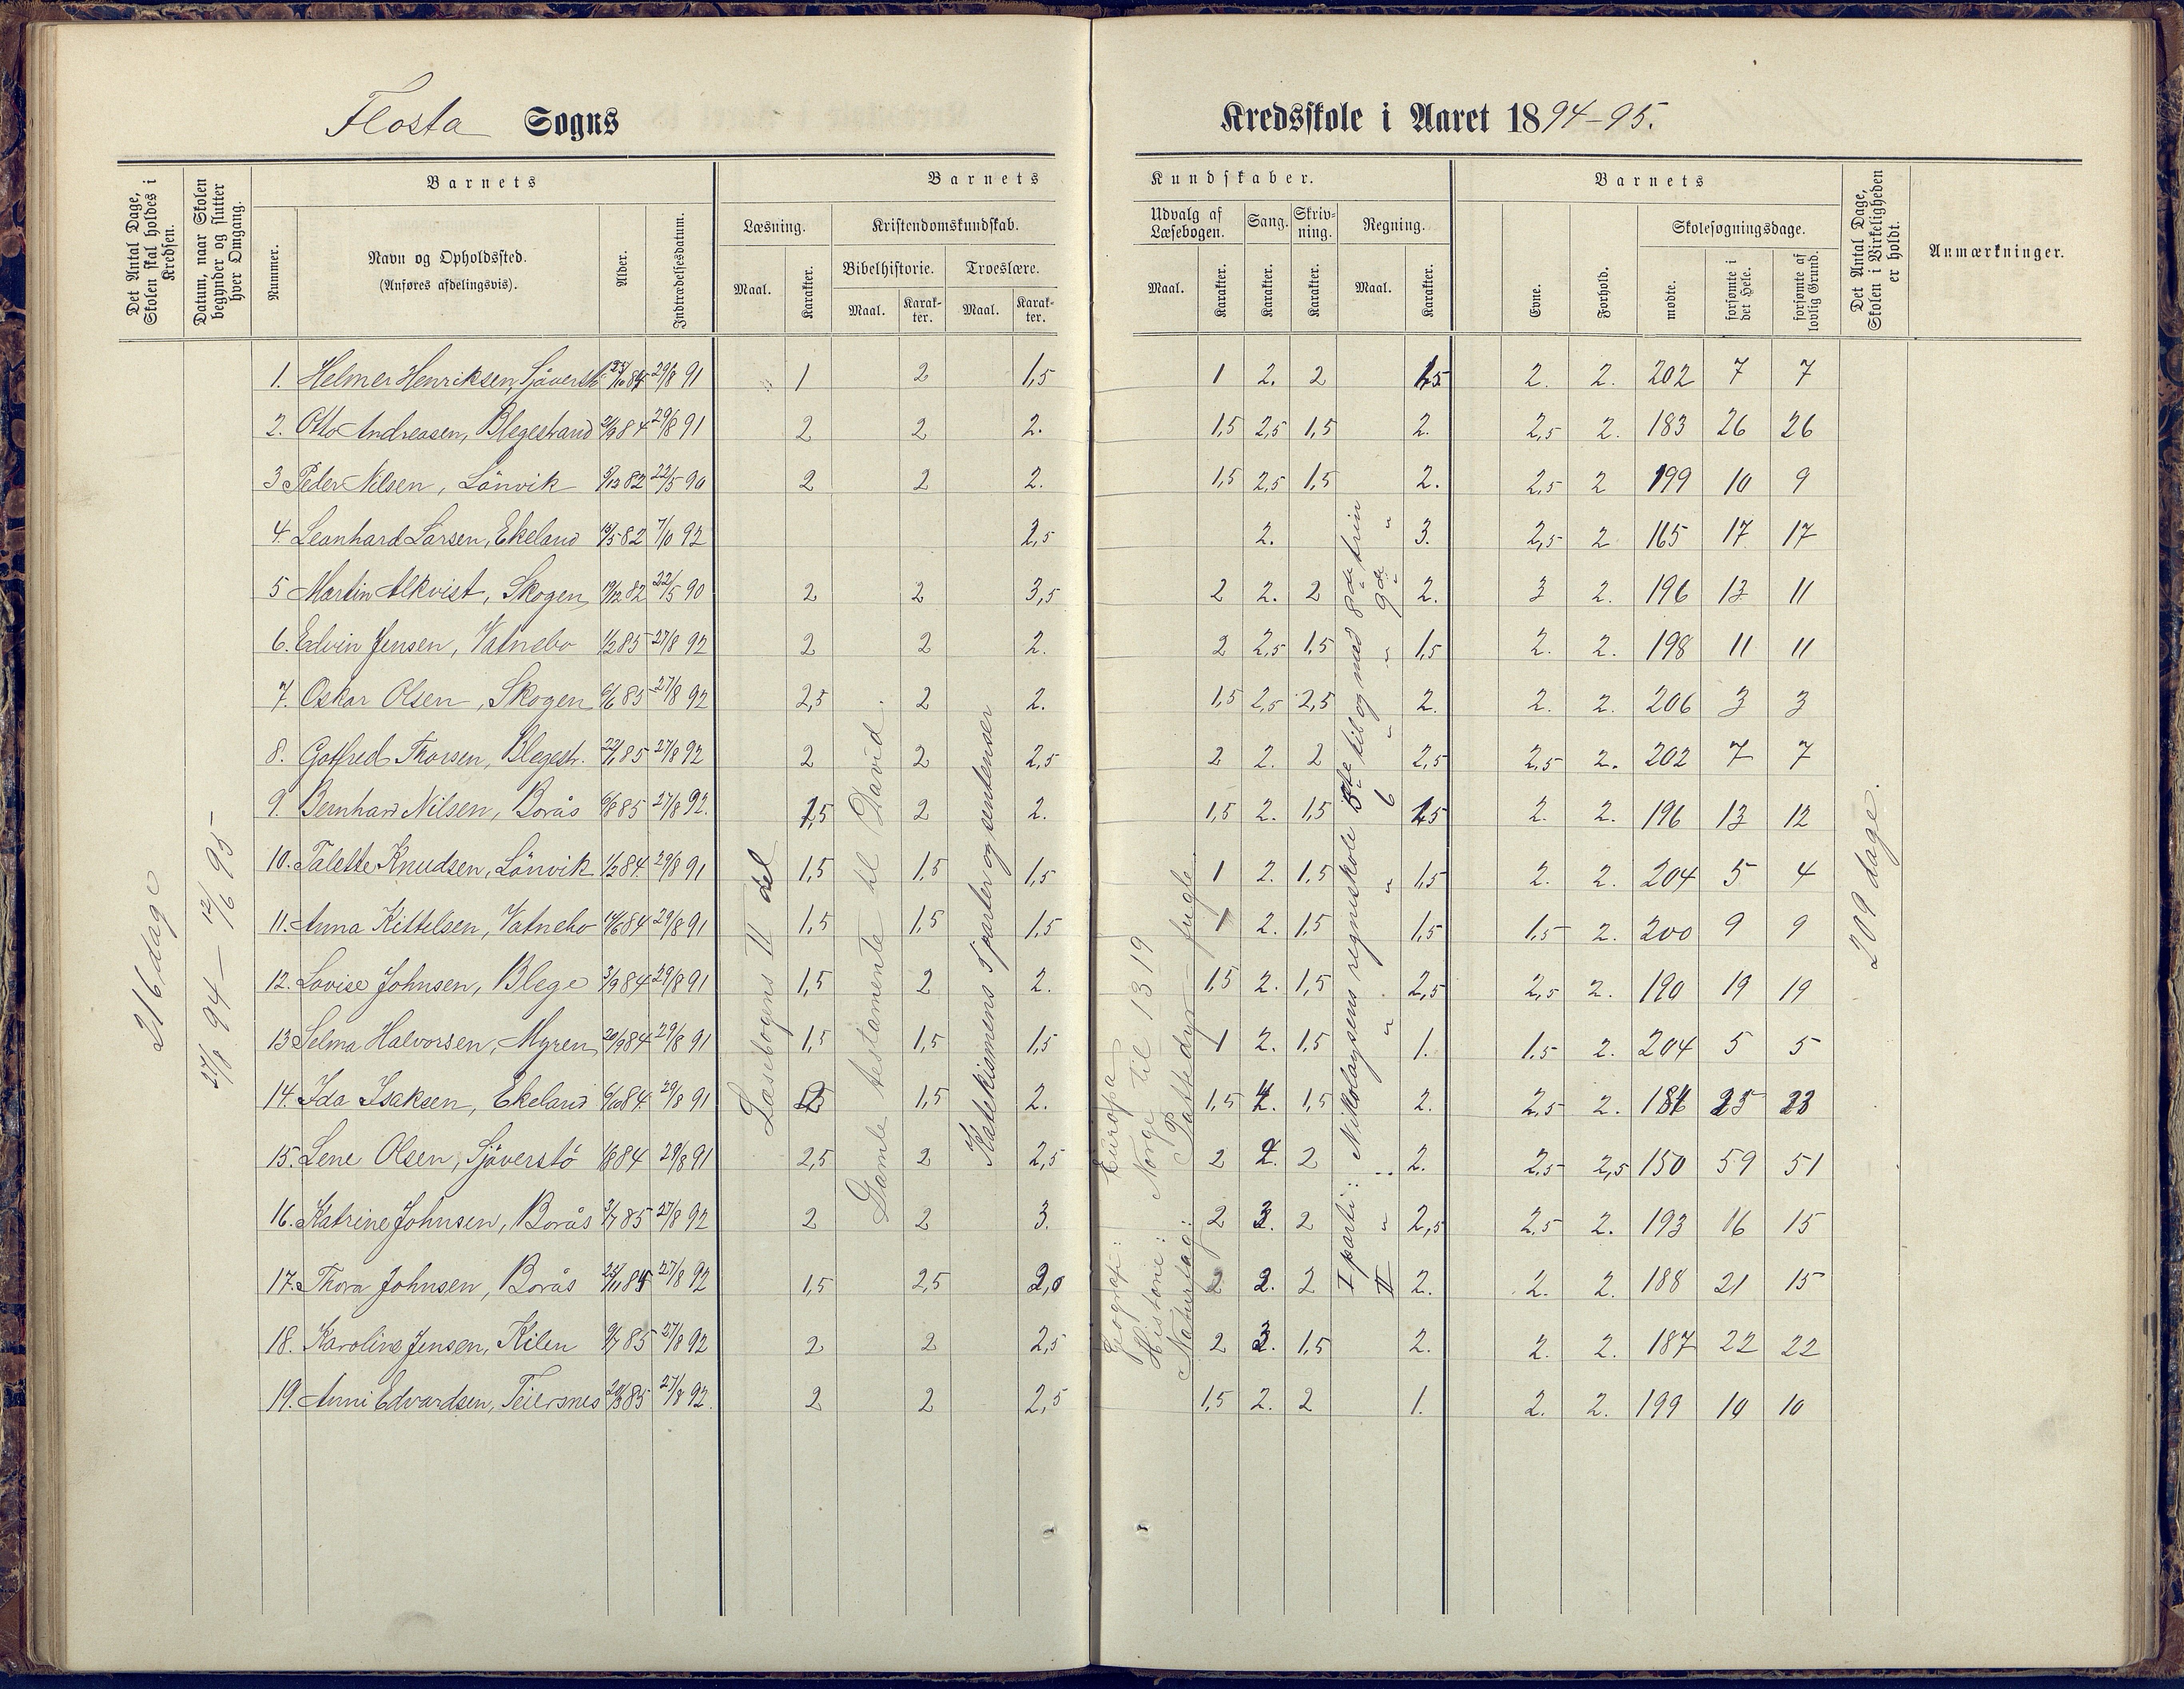 Flosta Sogns Kredsskole i Aaret 1894-95.
Det Antal Dage, Skolen skal holdes i Kredsen.
Datum, naar Skolen begynder og slutter hver Omgang.
Barnets
Nummer.
Navn og Opholdssted.
(Anføres afdelingsvis).
Alder.
Indtrædelsesdatum.
Barnets Kundskaber.
Læsning.
Maal.
Karakter.
Kristendomskundskab.
Bibelhistorie.
Maal.
Karakter.
Troeslære.
Maal.
Karakter.
Udvalg af Læsebogen.
Maal.
Karakter.
Sang.
Karakter.
Skrivning.
Karakter.
Regning.
Maal.
Karakter.
Barnets
Evne.
Forhold.
Skolesøgningsdage.
mødte.
forsømte i det Hele.
forsømte af lovlig Grund.
Det Antal Dage, Skolen i Virkeligheden er holdt.
Anmærkninger.
216 dage
27/8 94 — 12/6 95
1. Helmer Henriksen, 29/8 91 1 2 1,5 1 2. 2 1,5 2. 2. 202 7 7
2. Otto Andreasen, Blegestrand 29/8 91 2 2 2. 1,5 2,5 1,5 2. 2,5 2. 183 26 26
3 Peder Nilsen, Lönvik 5/12 82 22/5 90 2 2 2. 1,5 2,5 1,5 2. 2,5 2 199 10 9
4. Leonhard Larsen, Ekeland 7/10 92 2,5 2. 3. 2,5 2 165 17 17
5 Martin Alkvist, Skogen 19/12 82 22/5 90 2 2 3,5 2 2. 2 2. 3 2. 196 13 11
6. Edvin Jensen, Vatnebo 1/2 85 27/8 92 2 2 2. 2 2,5 1,5 1,5 2. 2. 198 11 11
7. Oskar Olsen, Skogen 6/6 85 27/8 92 2,5 2 2. 1,5 2,5 2,5 2. 2. 2. 206 3 3
8. Gotfred Thorsen, Blegestr. 27/8 92 2 2 2,5 2 2. 2 2,5 2,5 2. 202 7 7
9. Bernhard Nilsen, Borås 6/8 85 27/8 92. 1,5 2 2. 1,5 2. 1,5 1,5 2. 2. 196 13 12
10. Talette Knudsen, Lönvik 1/2 84 29/8 91 1,5 1,5 1,5 1 2. 1,5 1,5 2. 2. 204 5 4
11. Anna Kittelsen, Vatnebo 14/6 84 29/8 91 1,5 1,5 1,5 1 2. 1,5 1,5 1,5 2. 200 9 9
12. Lovise Johnsen, Blege 3/9 84 29/8 91 1,5 2 2. 1,5 2. 1,5 2,5 2,5 2. 190 19 19
13 Selma Halvorsen, Myren 20/9 84 29/8 91 1,5 1,5 1,5 1 2. 1,5 1. 1.5 2. 204 5 5
14. Ida Isaksen, Ekeland 6/10 84. 29/8 91 1,5 2. 1,5 1,5 2. 2,5 2. 184 25 23
15. Lene Olsen, Sjöverstö 1/8 84 29/8 91 2,5 2 2,5 2 2. 2 2. 2.5 2,5 150 59 51
16. Katrine Johnsen, Borås 3/7 85 27/8 92 2 2 3. 2 3. 2 2,5 2.5 2. 193 16 15
17. Thora Johnsen, Borås 27/8 92 1,5 2,5 2,0 2 2. 2 2. 2. 2. 188 21 15
18. Karoline Jensen, Kilen 9/7 85 27/8 92 2 2 2,5 2 3. 1.5 2. 2. 2. 187 22 22
19. Anni Edvardsen, Teiersnes 27/8 92. 2 2 2,5 1,5 2. 2 1. 2. 2. 199 10 10
Læsebogens II del
Gamle testamente til David.
Katekismens 5 parter og sentenser
Geografi: Europa
Historie: Norge til 1319
Naturfag: Pattedyr – fugle
I parti: Nikolaysens regneskole 5te til og med 8de trin
II " " " 6 " " 9de "
209 dage.